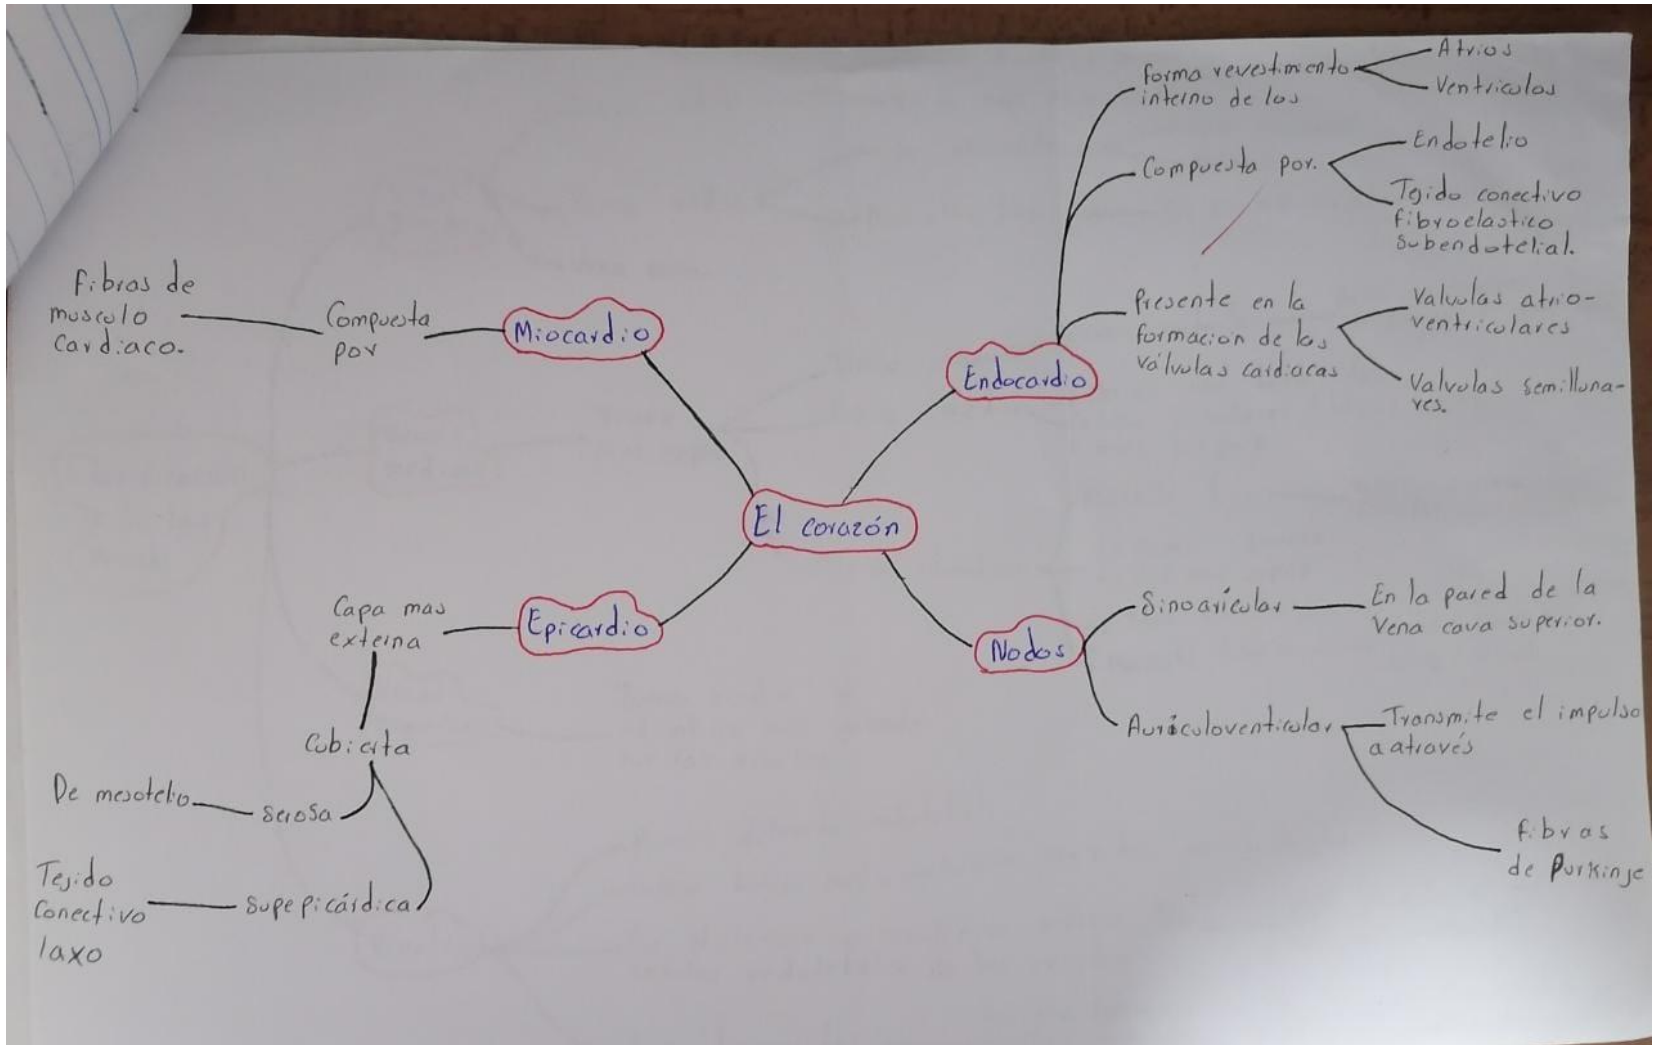 El corazón
Miocardio
Compuesta
por
fibras de
musculo
Cardiaco.
Endocardio
forma revestimiento
interno de los
Atrios
Ventriculos
Compuesta por.
Endotelio
Tejido conectivo
fibroelastico
subendotelial.
Presente en la
formacion de las
válvulas cardiacas
Valvulas atrio-
ventriculares
Valvulas semilluna-
res.
Epicardio
Capa mas
externa
Cubierta
serosa
De mesotelio
supepicárdica
Tejido
Conectivo
laxo
Nodos
Sinoaricular
En la pared de la
Vena cava superior.
Auriculoventicular
Transmite el impulso
a através
fibras
de Purkinje